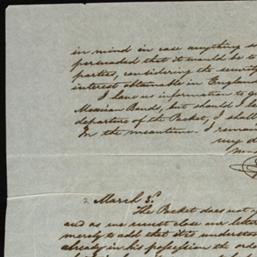 in mind in case anything s
persuaded that it would be to
parties, considering the security
interest obtainable in England
I have no information to g
Mexican Bonds, but should I be
departure of the Packet, I shall
In the meantime. I remain
my d
March 5.
The Packet does not
and as we must close our lette
merely to add that it is understoo
already in his possession the ord